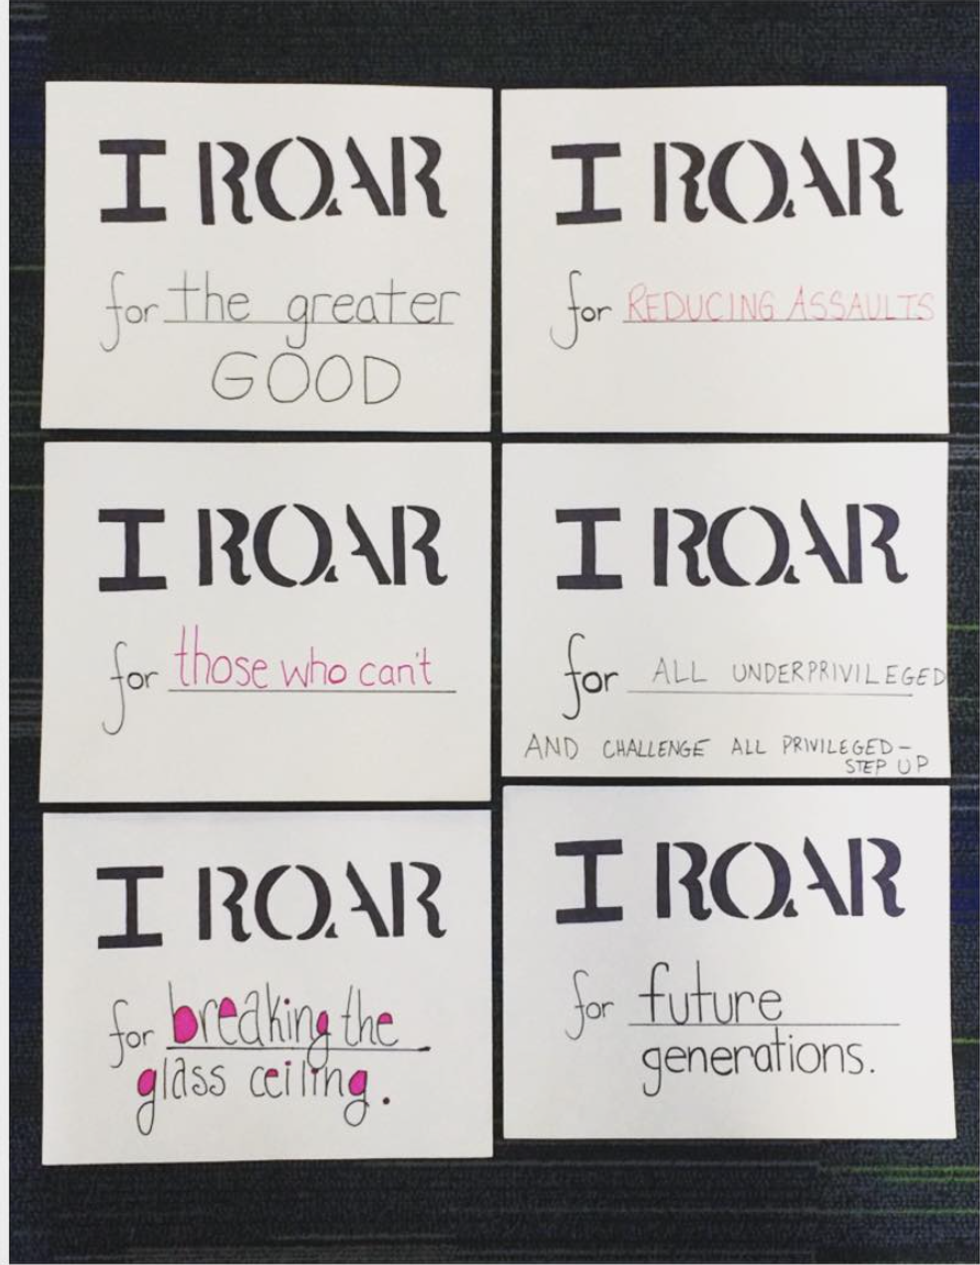 I ROAR
for the greater
GOOD
I ROAR
for REDUCING ASSAULTS
I ROAR
for those who can't
I ROAR
for ALL UNDERPRIVILEGED
AND CHALLENGE ALL PRIVILEGED-
STEP UP
I ROAR
for breaking the
glass ceiling.
I ROAR
for future
generations.